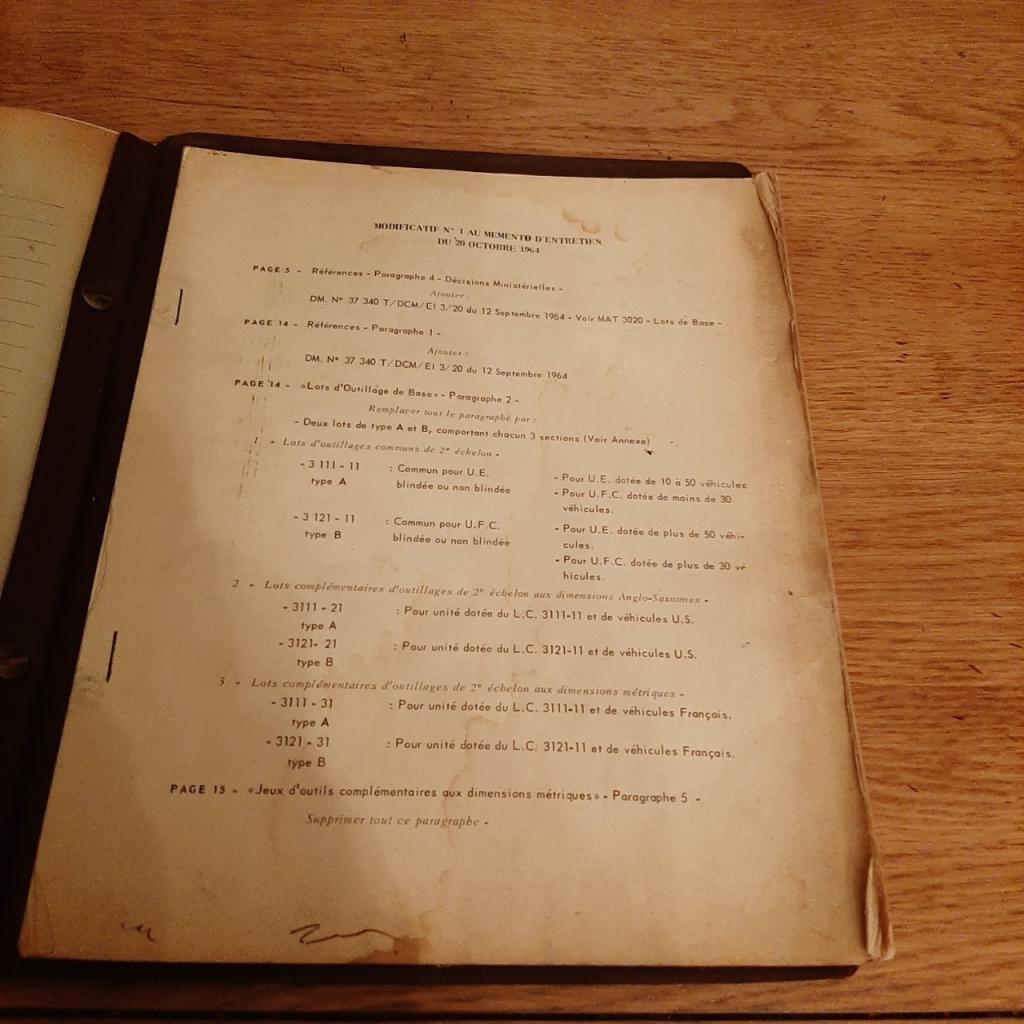 MODIFICATIF N° 1 AU MEMENTO D'ENTRETIEN
DU 20 OCTOBRE 1964
PAGE 5 - Références - Paragraphe 4 - Décisions Ministérielles -
Ajouter :
DM. N° 37 340 T/DCM/EI 3/20 du 12 Septembre 1964 - Voir MAT 3020 - Lots de Base -
PAGE 14 - Références - Paragraphe 1 -
Ajouter :
DM. N° 37 340 T/DCM/EI 3/20 du 12 Septembre 1964
PAGE 14 - «Lots d'Outillage de Base» - Paragraphe 2 -
Remplacer tout le paragraphe par :
- Deux lots de type A et B, comportant chacun 3 sections (Voir Annexe) -
1 - Lots d'outillages communs de 2e échelon -
- 3 111 - 11 : Commun pour U.E. - Pour U.E. dotée de 10 à 50 véhicules
type A blindée ou non blindée - Pour U.F.C. dotée de moins de 30
véhicules.
- 3 121 - 11 : Commun pour U.F.C. - Pour U.E. dotée de plus de 50 véhi-
type B blindée ou non blindée cules.
- Pour U.F.C. dotée de plus de 30 vé
hicules.
2 - Lots complémentaires d'outillages de 2e échelon aux dimensions Anglo-Saxonnes -
- 3111 - 21 : Pour unité dotée du L.C. 3111-11 et de véhicules U.S.
type A
- 3121- 21 : Pour unité dotée du L.C. 3121-11 et de véhicules U.S.
type B
3 - Lots complémentaires d'outillages de 2e échelon aux dimensions métriques -
- 3111 - 31 : Pour unité dotée du L.C. 3111-11 et de véhicules Français.
type A
- 3121 - 31 : Pour unité dotée du L.C. 3121-11 et de véhicules Français.
type B
PAGE 15 - «Jeux d'outils complémentaires aux dimensions métriques» - Paragraphe 5 -
Supprimer tout ce paragraphe -